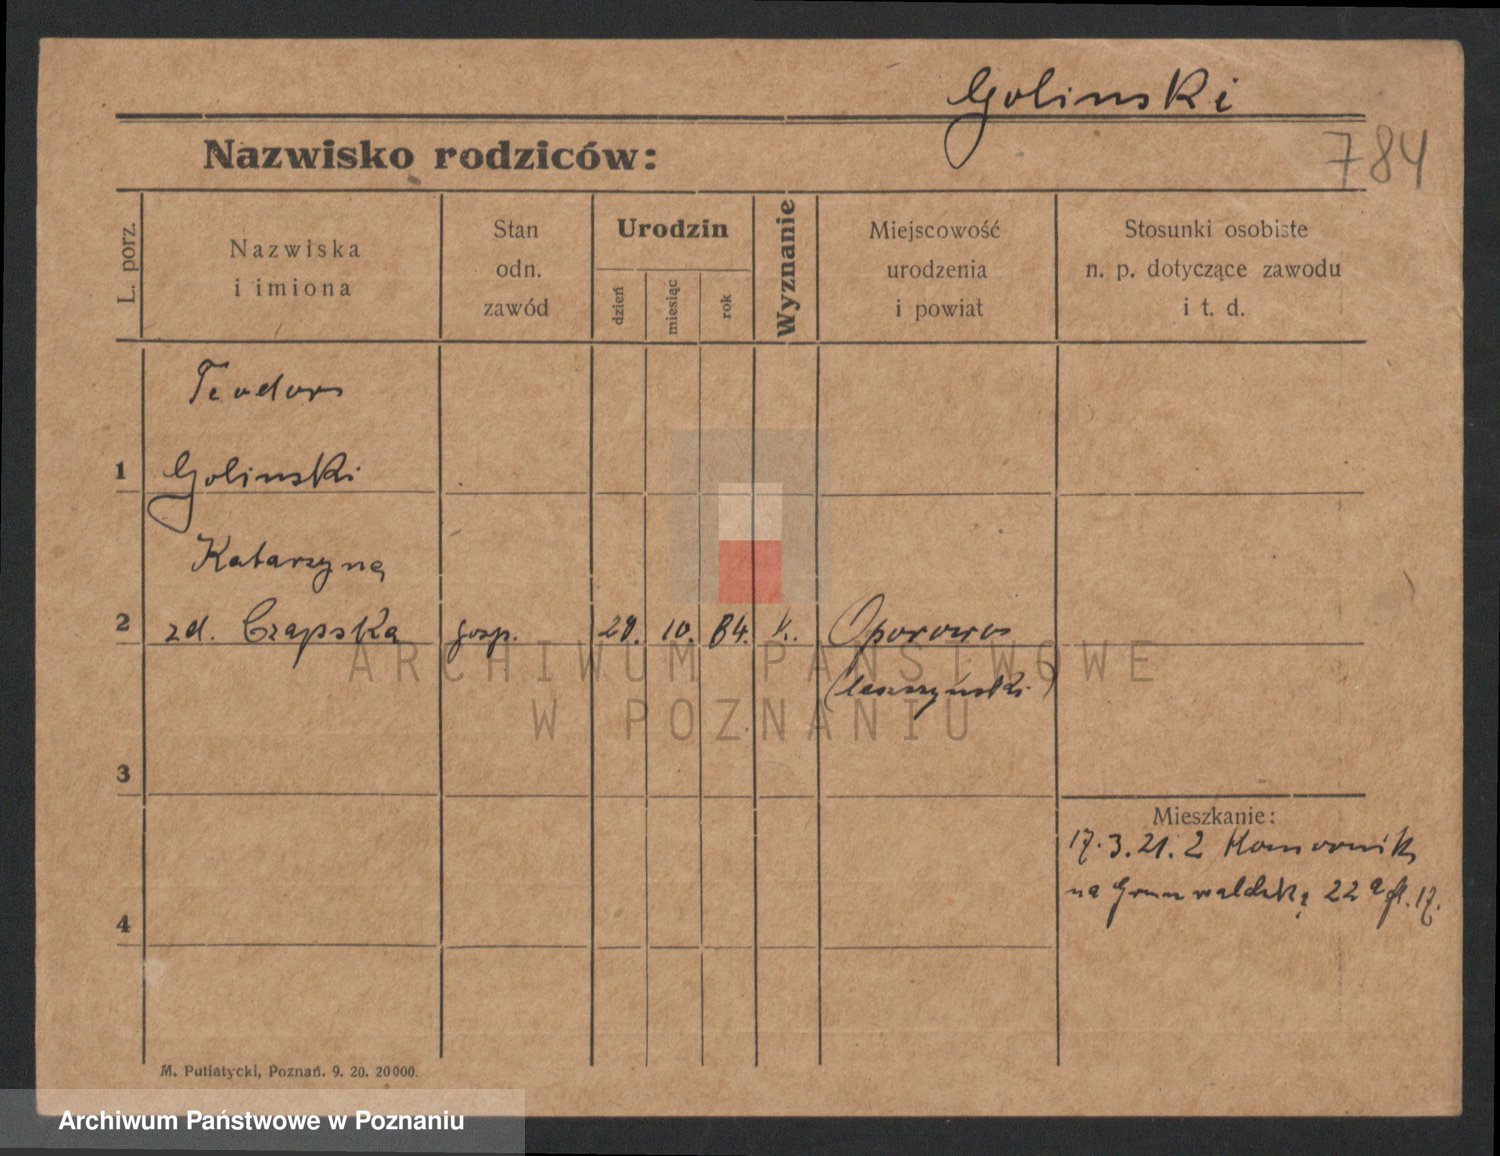 Golinski
Nazwisko rodziców:
784
L. porz.
Nazwiska
i imiona
Stan
odn.
zawód
Urodzin
dzień
miesiąc
rok
Wyznanie
Miejscowość
urodzenia
i powiat
Stosunki osobiste
n. p. dotyczące zawodu
i t. d.
Teodor
1 Golinski
Katarzyna
2 zd. Czapska gosp. 29. 10. 84. k. Oporowo
(leszczyński)
ARCHIWUM PAŃSTWOWE
W POZNANIU
3
Mieszkanie:
17.3.21. z Komornik
na Grunwaldzką 22a
4
M. Putiatycki, Poznań. 9. 20. 20000.
Archiwum Państwowe w Poznaniu